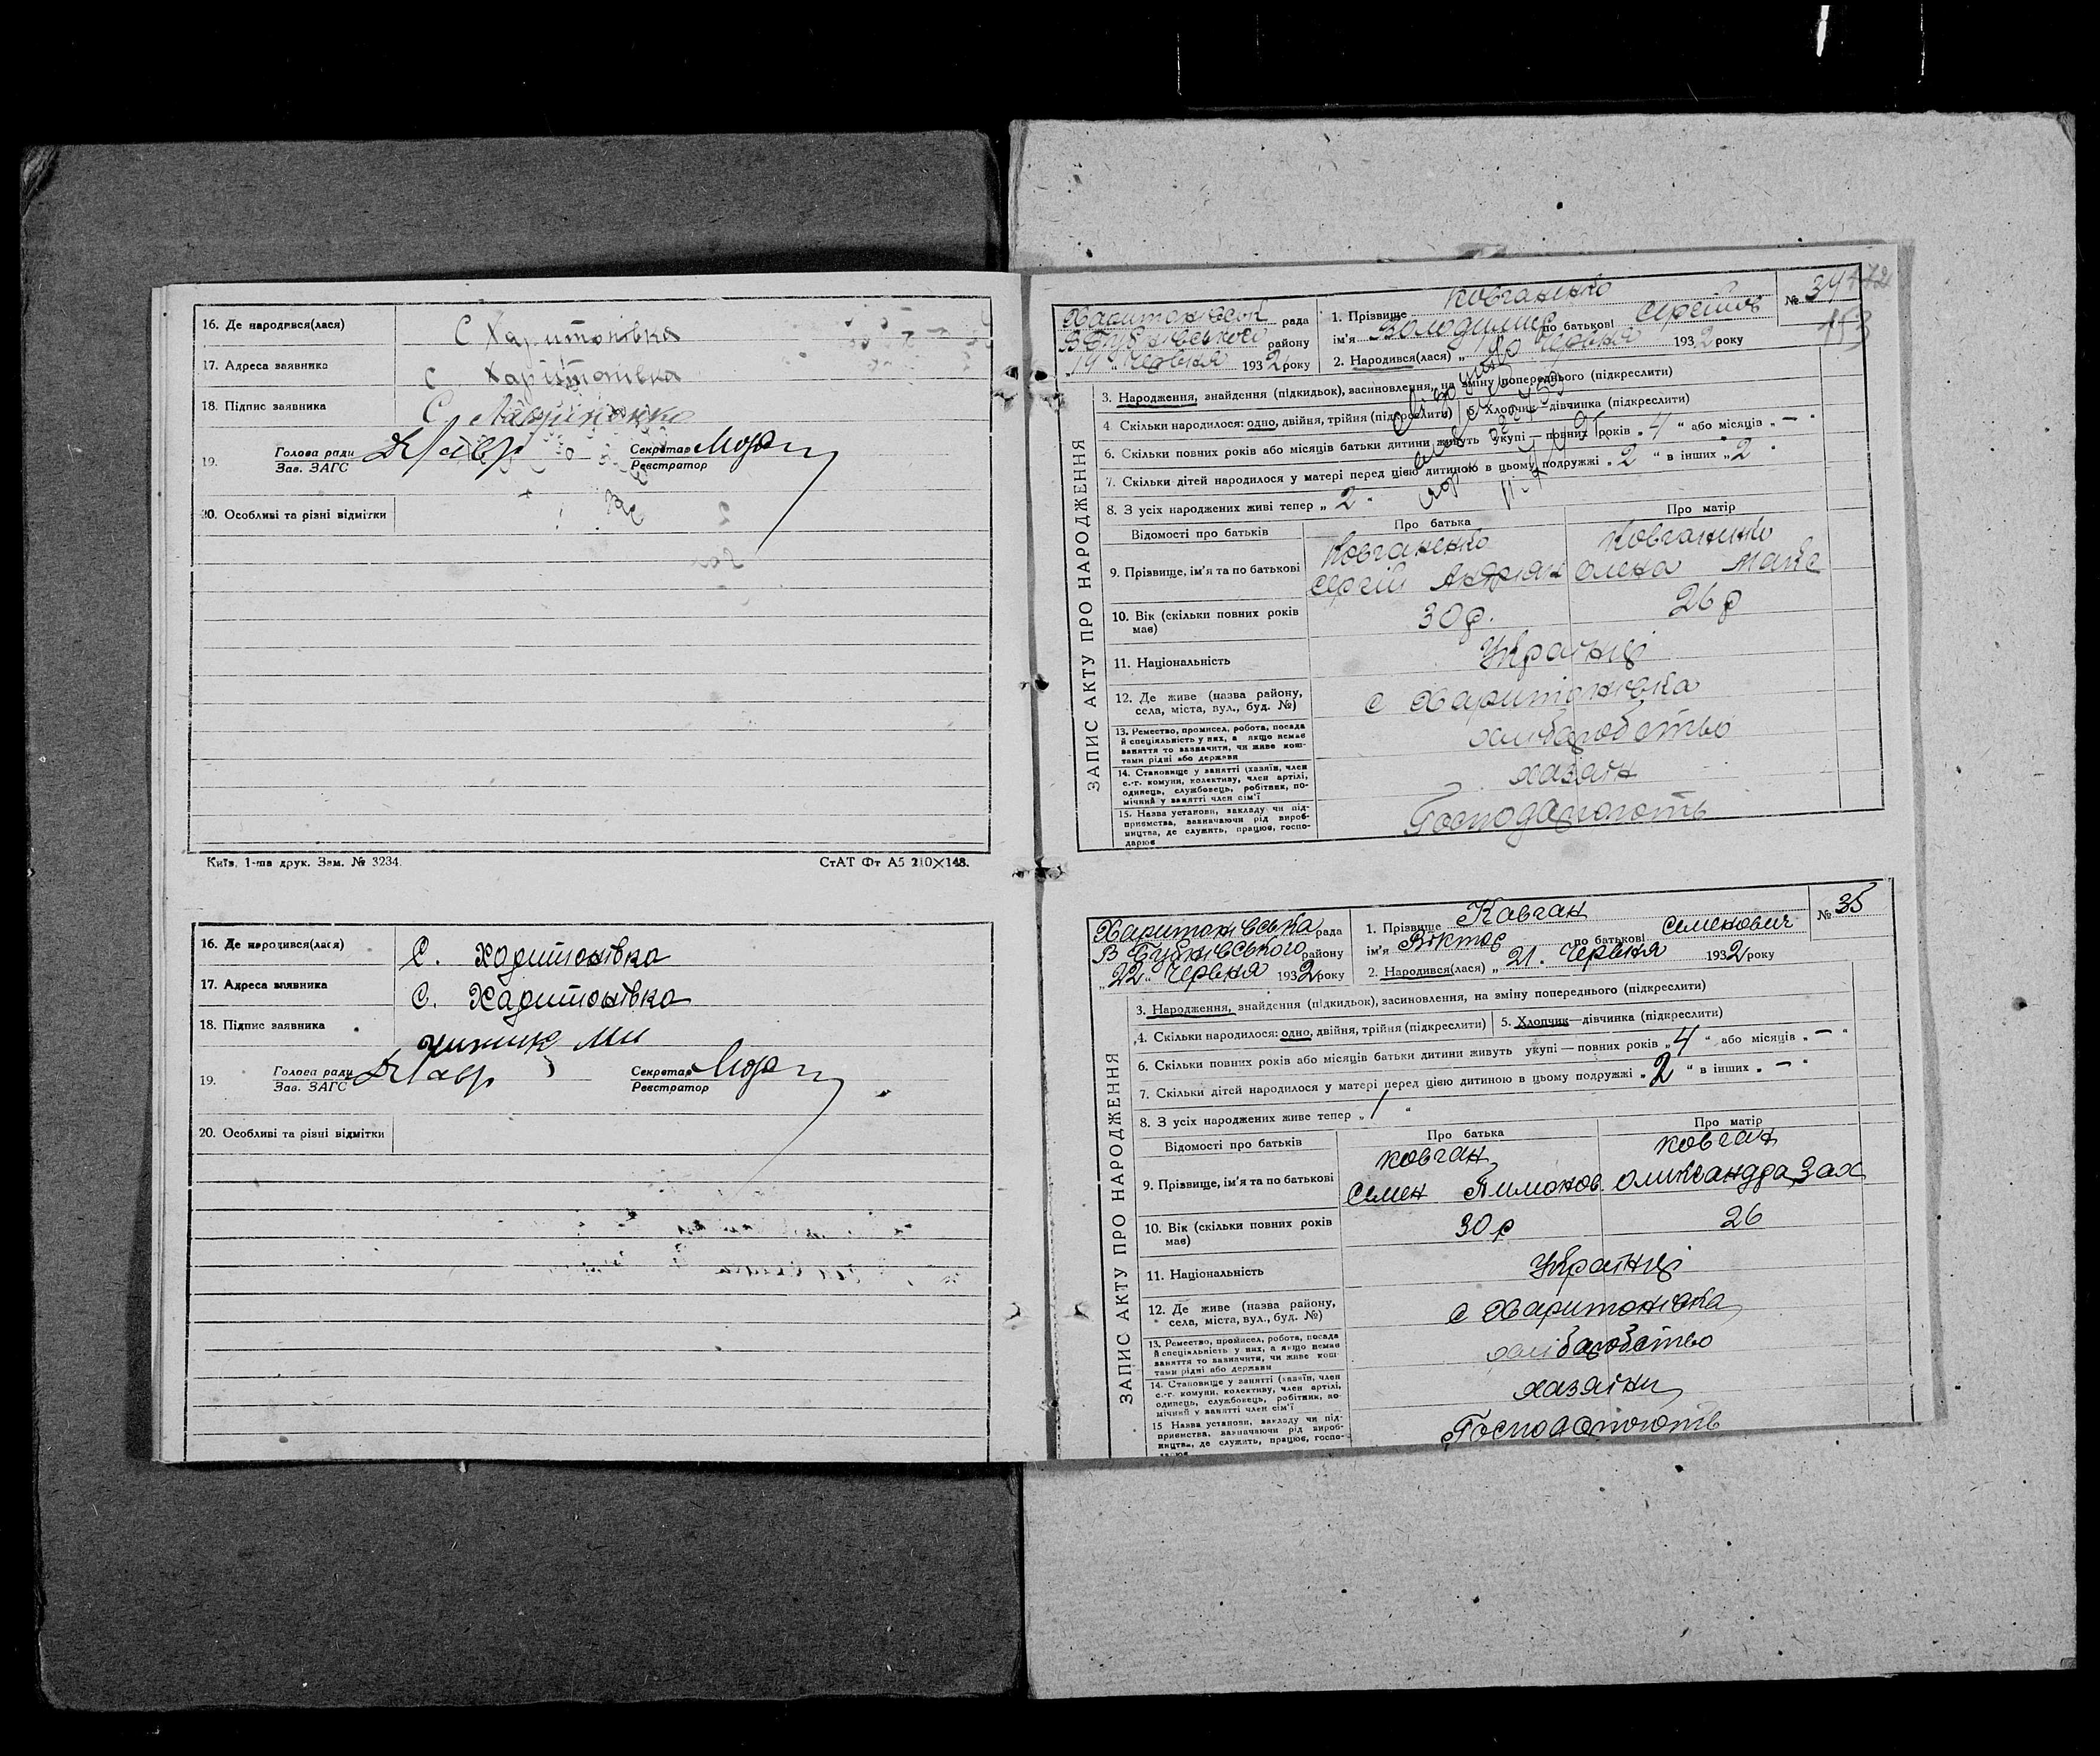 16. Де народився(лася) С Харитонівка
17. Адреса заявника С Харитонівка
18. Підпис заявника С.
19. Голова ради Секретар
Зав. ЗАГС Реєстратор
20. Особливі та різні відмітки
Київ, 1-ша друк. Зам. № 3234. СтАТ Фт А5 210×148.
16. Де народився(лася) С. Харитонівка
17. Адреса заявника С. Харитонівка
18. Підпис заявника
19. Голова ради Секретар
Зав. ЗАГС Реєстратор
20. Особливі та різні відмітки
ЗАПИС АКТУ ПРО НАРОДЖЕННЯ
рада
району
„19" Червня 1932 року
1. Прізвище Ковганенко № 34
ім'я Володимир по батькові Сергійов
2. Народився(лася) „ Червня 1932 року
3. Народження, знайдення (підкидьок), засиновлення, на зміну попереднього (підкреслити)
4. Скільки народилося: одно, двійня, трійня (підкреслити) 5. Хлопчик—дівчинка (підкреслити)
6. Скільки повних років або місяців батьки дитини живуть укупі — повних років „4" або місяців „—"
7. Скільки дітей народилося у матері перед цією дитиною в цьому подружжі „2" в інших „2"
8. З усіх народжених живі тепер „2"
Відомості про батьків Про батька Про матір
9. Прізвище, ім'я та по батькові Ковганенко Ковганенко
Сергій Андріян Олена Макс
10. Вік (скільки повних років має) 30 р. 26 р
11. Національність Українці
12. Де живе (назва району, села, міста, вул., буд. №) с Харитонівка
13. Ремество, промисел, робота, посада й спеціяльність у них, а якщо немає заняття то зазначити, чи живе коштами рідні або держави хліборобство
14. Становище у занятті (хазяїн, член с.-г. комуни, колективу, член артілі, одинець, службовець, робітник, помічний у занятті член сім'ї хазяїн
15. Назва установи, закладу чи підприємства, зазначаючи рід виробництва, де служить, працює, господарює Господарюють
ЗАПИС АКТУ ПРО НАРОДЖЕННЯ
Харитонівська рада
В Бубнівського району
„22" Червня 1932 року
1. Прізвище Кавган № 35
ім'я Віктор по батькові Семенович
2. Народився(лася) „21. Червня 1932 року
3. Народження, знайдення (підкидьок), засиновлення, на зміну попереднього (підкреслити)
4. Скільки народилося: одно, двійня, трійня (підкреслити) 5. Хлопчик—дівчинка (підкреслити)
6. Скільки повних років або місяців батьки дитини живуть укупі — повних років „4" або місяців „—"
7. Скільки дітей народилося у матері перед цією дитиною в цьому подружжі „2" в інших „—"
8. З усіх народжених живе тепер „1"
Відомості про батьків Про батька Про матір
9. Прізвище, ім'я та по батькові Ковган Ковган
Семен Тимонов. Олександра Зах
10. Вік (скільки повних років має) 30 р 26
11. Національність Українці
12. Де живе (назва району, села, міста, вул., буд. №) с Харитонівка
13. Ремество, промисел, робота, посада й спеціяльність у них, а якщо немає заняття то зазначити, чи живе коштами рідні або держави хліборобство
14. Становище у занятті (хазяїн, член с.-г. комуни, колективу, член артілі, одинець, службовець, робітник, помічний у занятті член сім'ї хазяїни
15 Назва установи, закладу чи підприємства, зазначаючи рід виробництва, де служить, працює, господарює Господарюють